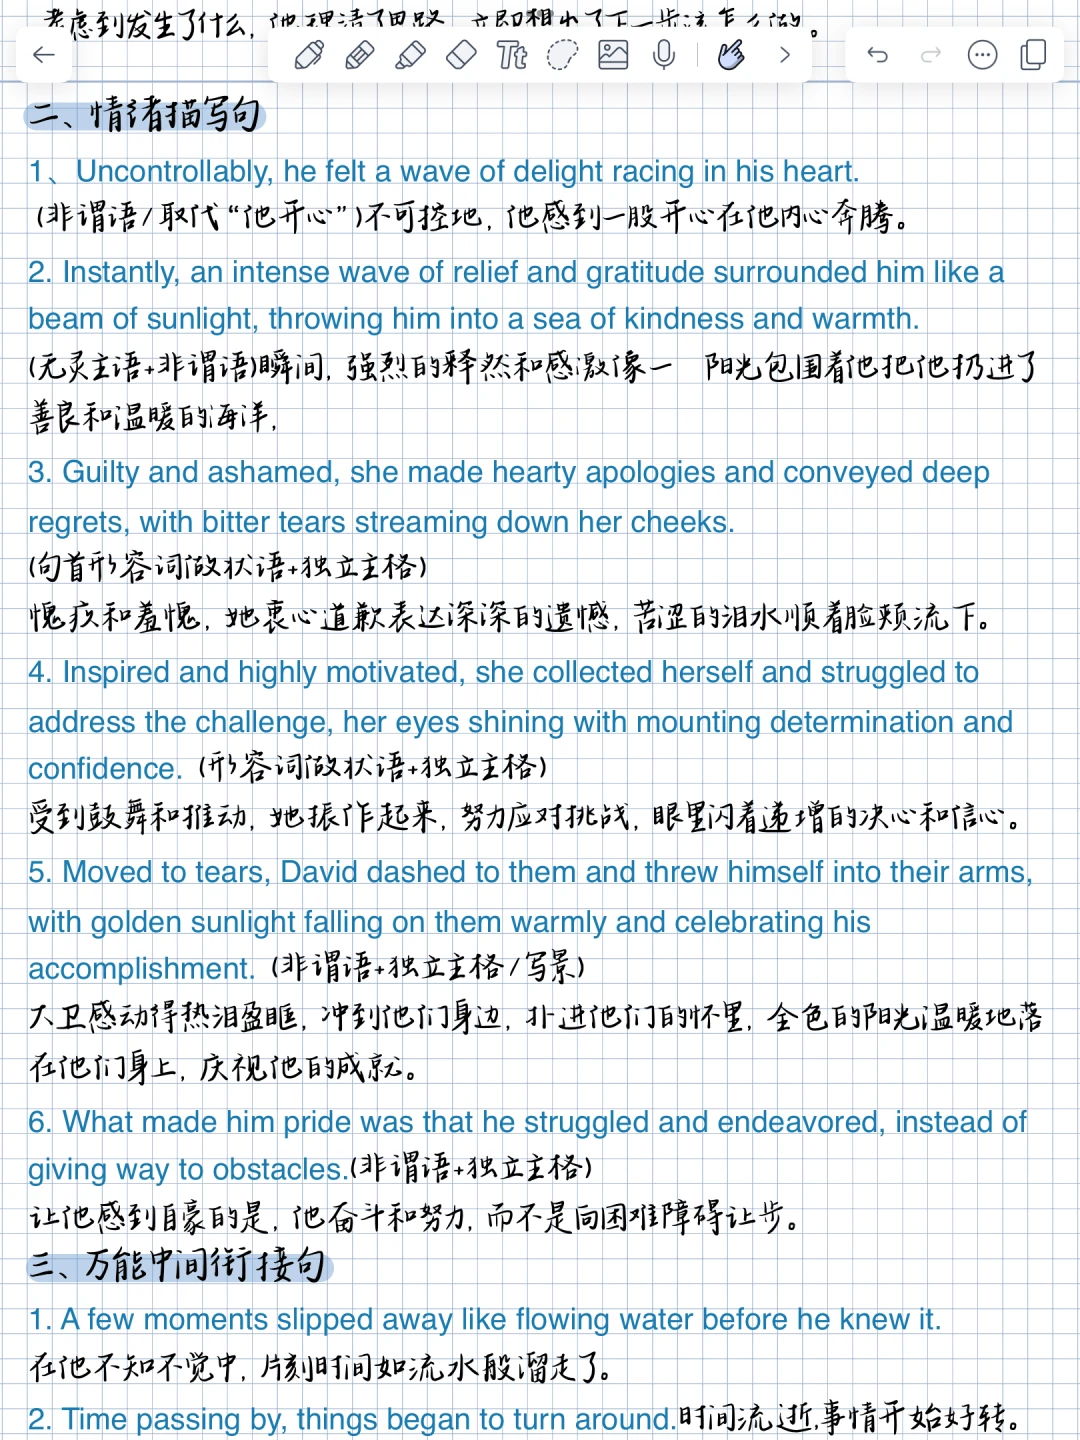 考虑到发生了什么, 他理清了思路, 立即想出了下一步该怎么做。
Tt
二、情绪描写句
1、Uncontrollably, he felt a wave of delight racing in his heart.
(非谓语/取代“他开心”)不可控地, 他感到一股开心在他内心奔腾。
2. Instantly, an intense wave of relief and gratitude surrounded him like a
beam of sunlight, throwing him into a sea of kindness and warmth.
(无灵主语+非谓语)瞬间, 强烈的释然和感激像一 阳光包围着他把他扔进了
善良和温暖的海洋,
3. Guilty and ashamed, she made hearty apologies and conveyed deep
regrets, with bitter tears streaming down her cheeks.
(句首形容词做状语+独立主格)
愧疚和羞愧, 她衷心道歉表达深深的遗憾, 苦涩的泪水顺着脸颊流下。
4. Inspired and highly motivated, she collected herself and struggled to
address the challenge, her eyes shining with mounting determination and
confidence. (形容词做状语+独立主格)
受到鼓舞和推动, 她振作起来, 努力应对挑战, 眼里闪着递增的决心和信心。
5. Moved to tears, David dashed to them and threw himself into their arms,
with golden sunlight falling on them warmly and celebrating his
accomplishment. (非谓语+独立主格/写景)
大卫感动得热泪盈眶, 冲到他们身边, 扑进他们的怀里, 金色的阳光温暖地落
在他们身上, 庆祝他的成就。
6. What made him pride was that he struggled and endeavored, instead of
giving way to obstacles.(非谓语+独立主格)
让他感到自豪的是, 他奋斗和努力, 而不是向困难障碍让步。
三、万能中间衔接句
1. A few moments slipped away like flowing water before he knew it.
在他不知不觉中, 片刻时间如流水般溜走了。
2. Time passing by, things began to turn around.时间流逝,事情开始好转。